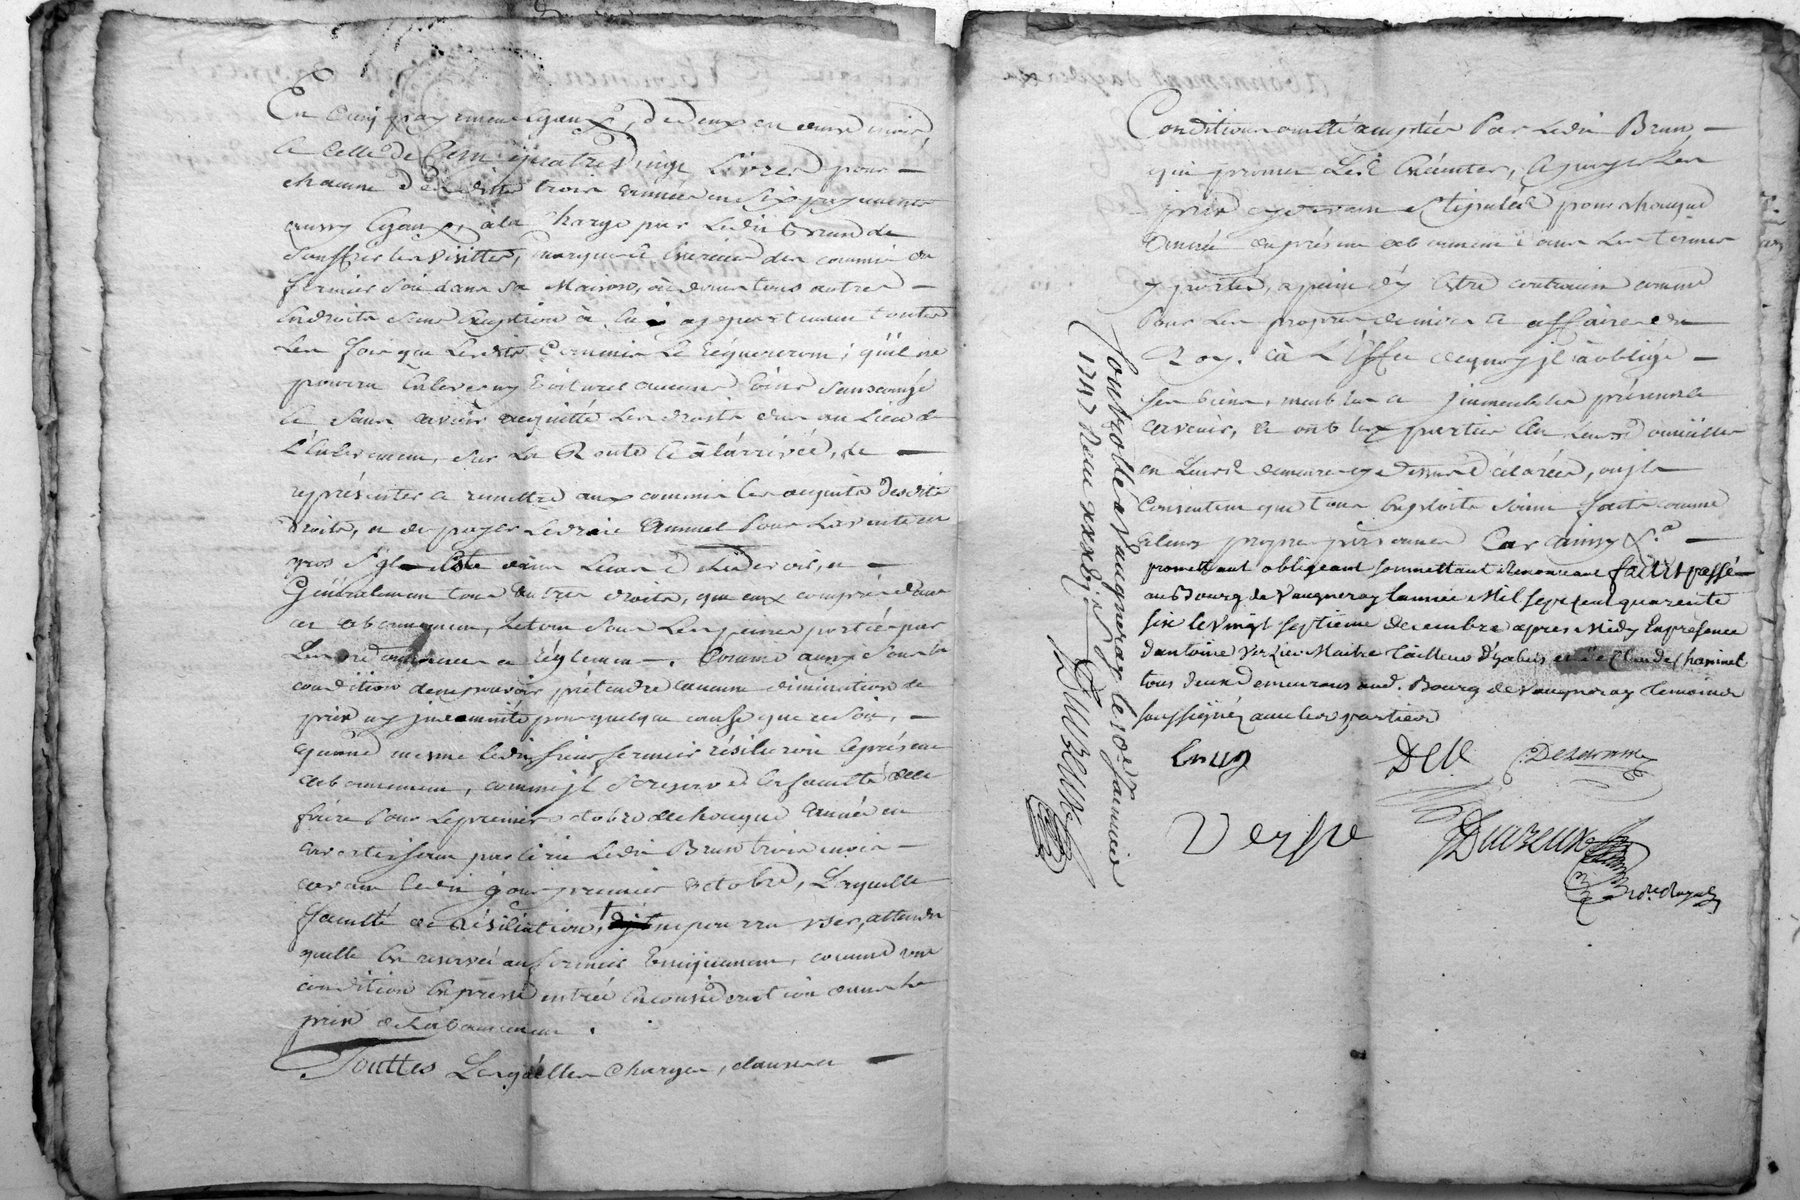 En Cinq payement egaux, de deux en deux mois
& celle de Cent quatre Vingt Livres pour
chacune desdittes trois années en six payements
aussy egaux, à la Charge par Ledit Brun de
Souffrir les visittes, marque & Exercice des commis du
fermier soit dans sa Maison, ou dans tous autres
Endroits sans Exception à lui appartenant toutes
Les fois que Lesdits Commis Le requereront; qu'il ne
pourra Enlever ny voiturer aucuns vins sans congé
& sans avoir acquitté Les droits dus au Lieu de
L'Enlevement, sur La Route & à L'arrivée, de
représenter & remettre aux commis les acquits desdits
droits, et de payer Le droit Annuel Pour La vente en
gros S'il
Généralement tous autres droits, que ceux compris dans
cet abonnement, Le tout sous Les peines portée par
Les ordonnances et réglemens. Comme aussy sous la
condition de ne pouvoir prétendre aucune diminution de
prix ny indemnité pour quelque cause que ce soit,
quand mesme ledit sieur fermier résilieroit le présent
abonnement, comme il se reserve la faculté de le
faire Pour Le premier octobre de chaque année en
avertissant par écrit Ledit Brun trois mois
avant ledit jour premier octobre, Laquelle
faculté de Résiliation, ne pourra user, attendu
quelle est reservée au fermier Uniquement, comme une
condition Expresse entrée En considération dans le
prix de l'abonnement.
Touttes Lesquelles charges, clauses et
Conditions ont été acceptées Par Ledit Brun,
qui promet Les Exécuter, & payer Les
prix cy devant stipulés pour chaque
Année du présent abonnement dans Les termes
y portés, a peine d'y Estre contraint comme
Pour Les propres deniers & affaires du
Roy. Et à L'Effet de quoy il a obligé
ses biens, meubles & immeubles présents &
avenir, et ont les parties Elu Leurs domicilles
en Leurs demeures cy dessus déclarées, ou ils
Consentent que tous Exploits soient faits comme
à Leurs propres personnes Car ainsy &a
promettant obligeant soumettant Renonceant fait et passé
au Bourg de Vaugneray L'année Mil sept cent quarente
six Le Vingt septieme decembre apres Midy En presence
d'antoine Verzieu Maitre Tailleur d'habits et de Claude Chaninel
tous deux demeurans aud. Bourg de Vaugneray temoins
soussignéz avec les parties
Brun
Dele
Delorme
Verssie
Duvreux
Nore Royal
Controllé à Vaugneray le 10e Janvier
1747 Recu
Duvreux